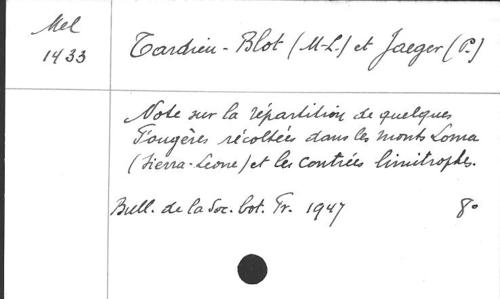 Mel
1433
Tardieu-Blot (M-L.) et Jaeger (P.)
Note sur la répartition de quelques
Fougères récoltées dans les monts Loma
(Sierra-Leone) et les contrées limitrophes.
Bull. de la Soc. bot. Fr. 1947 8°